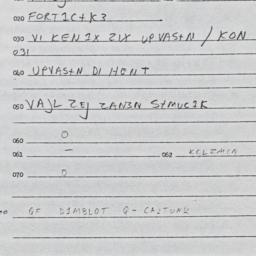 020 FORTIC+K3
030 VI KEN IX ZLX UPVAS+N / KON
031
040 UPVAS+N DI HONT
050 VAJL ZEJ ZAN3N S+MUCIK
060 O
061 –
062 KELZMIA
070 O
GF DIMBLOT G-